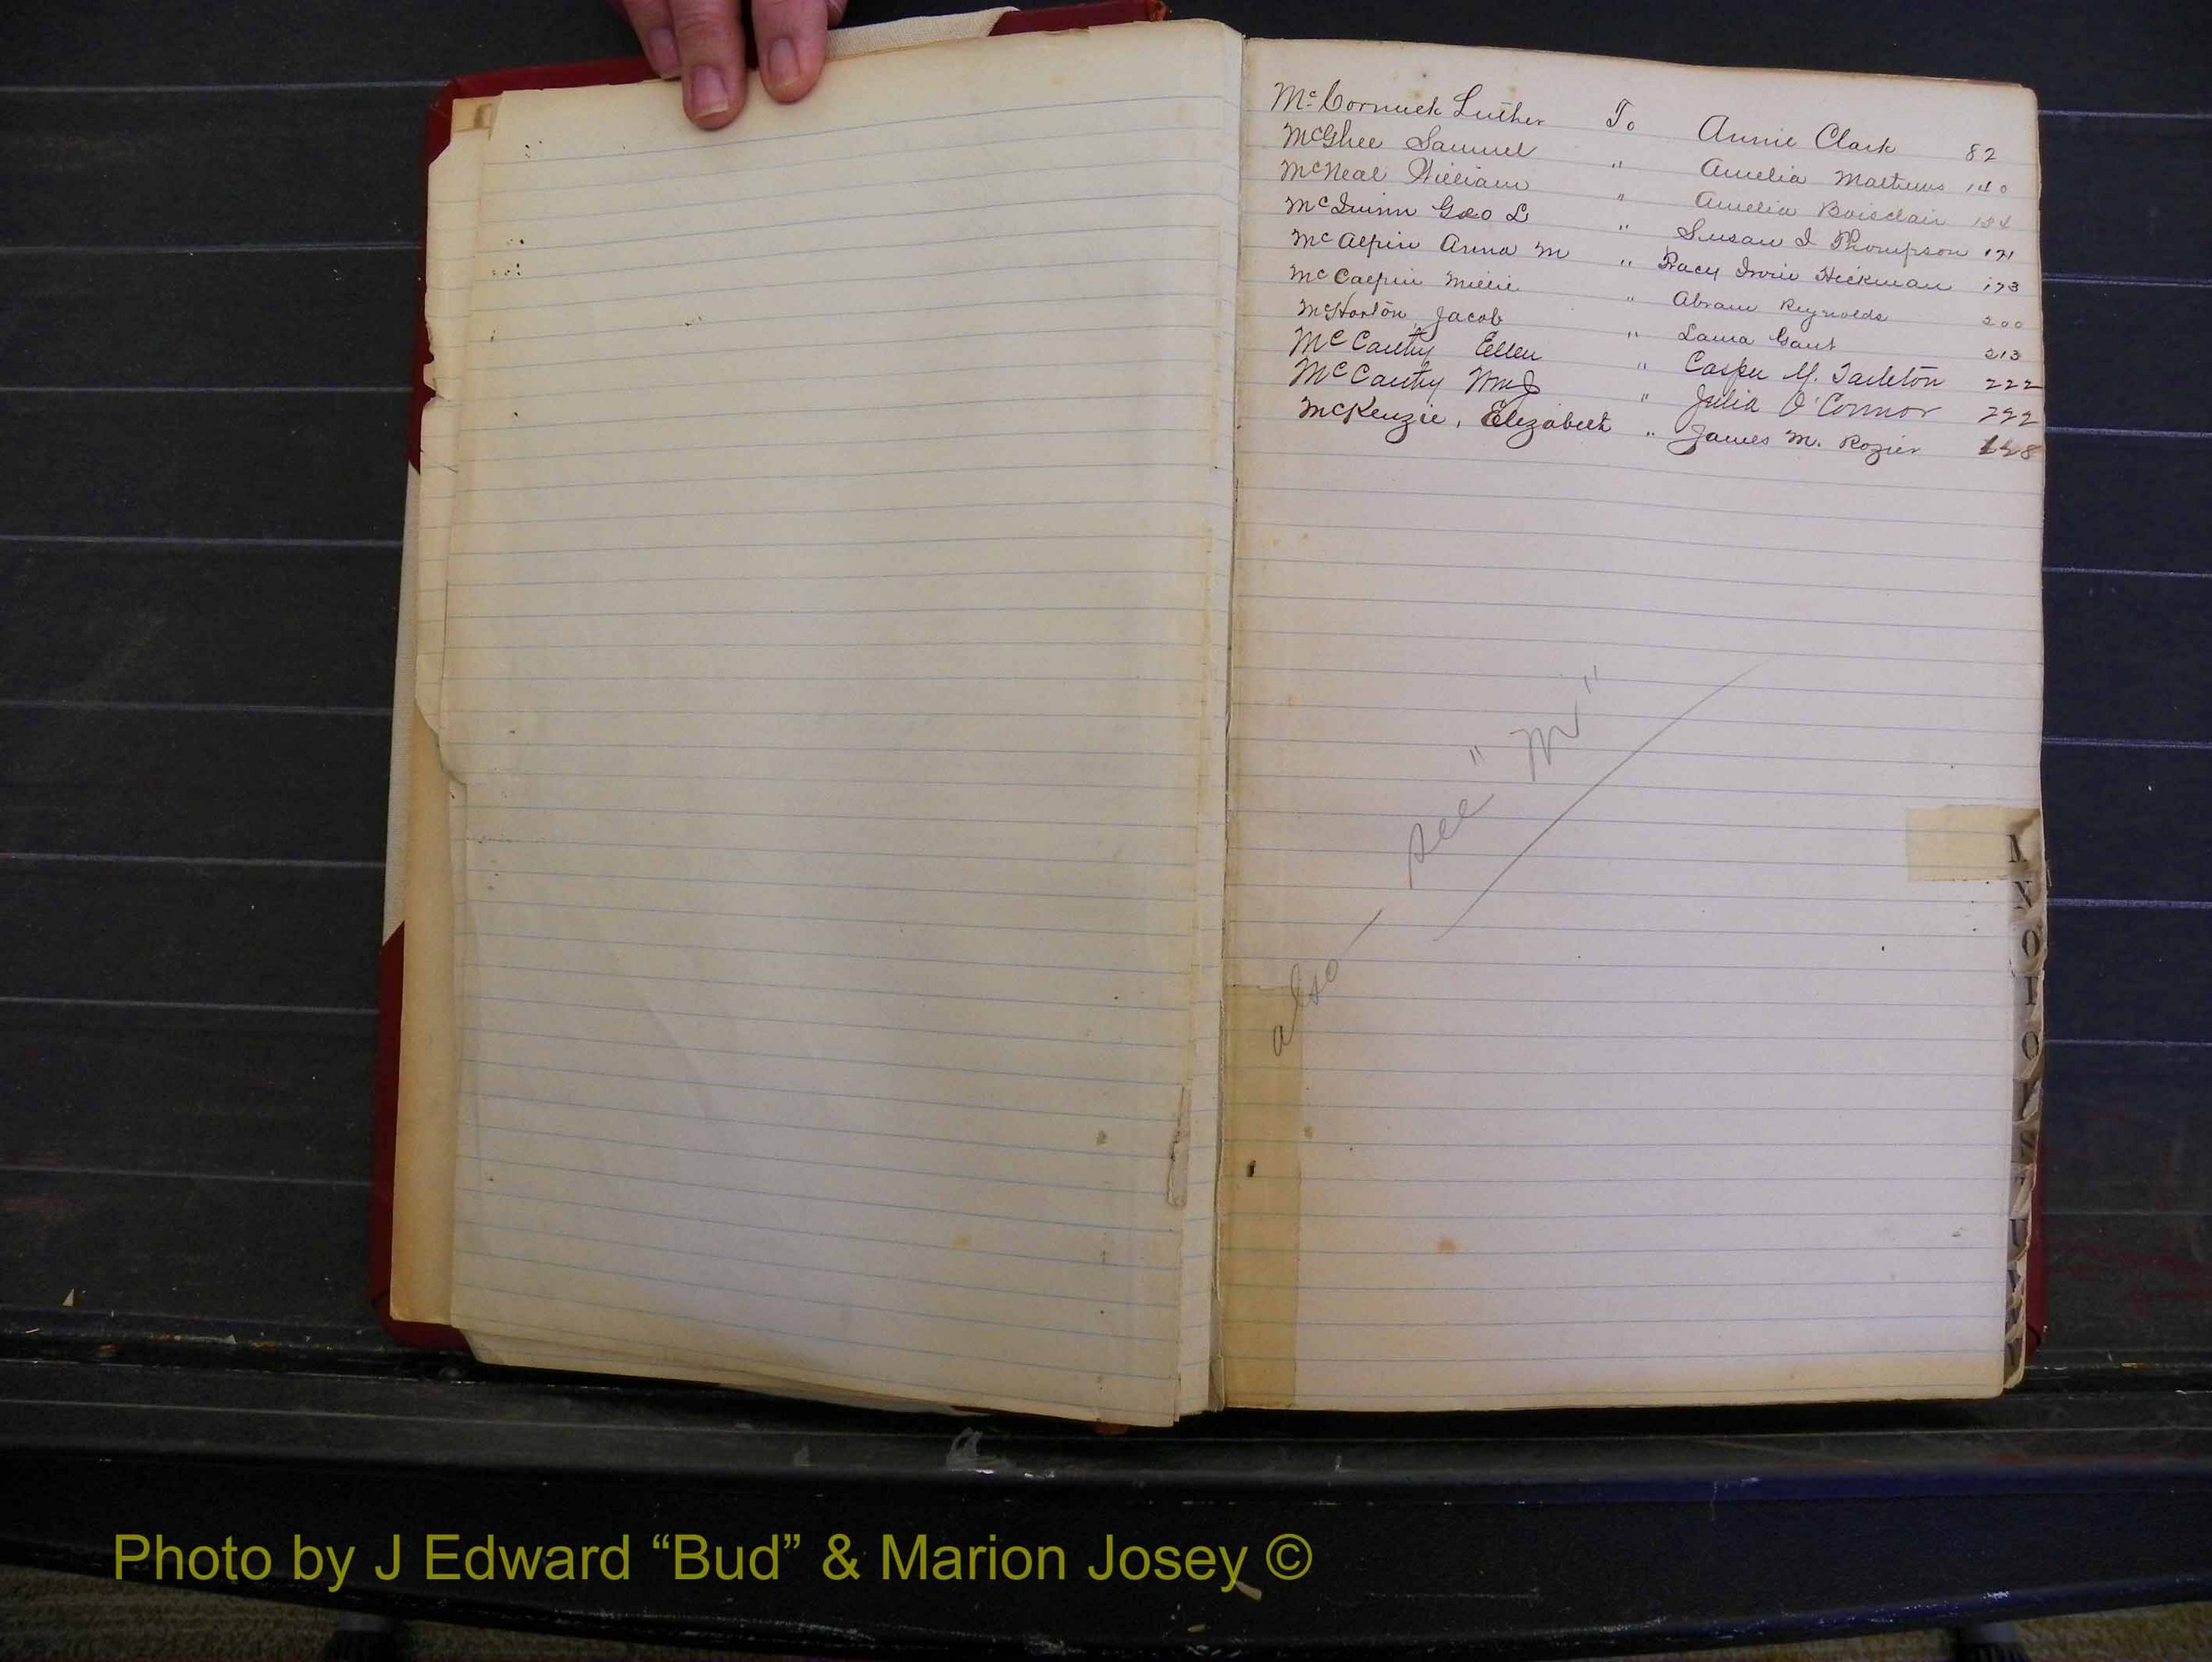 McCormick Luther To Annie Clark 82
McGhee Samuel " Amelia Mathews 140
McNeal William " Amelia Boisclair 154
McQuinn Geo L " Susan I Thompson 171
McAlpin Anna M " Irvin Hickman 173
McCalpin Millie " Abram Reynolds 200
McHorton, Jacob " Laura Gant 213
McCarthy Ellen " Casper Y. Tarleton 222
McCarthy Wm J " Julia O'Connor 222
McKenzie, Elizabeth " James M. Rozier
also — see "M"
M
N
O
P
Q
R
S
T
U
V
W
Photo by J Edward “Bud” & Marion Josey ©